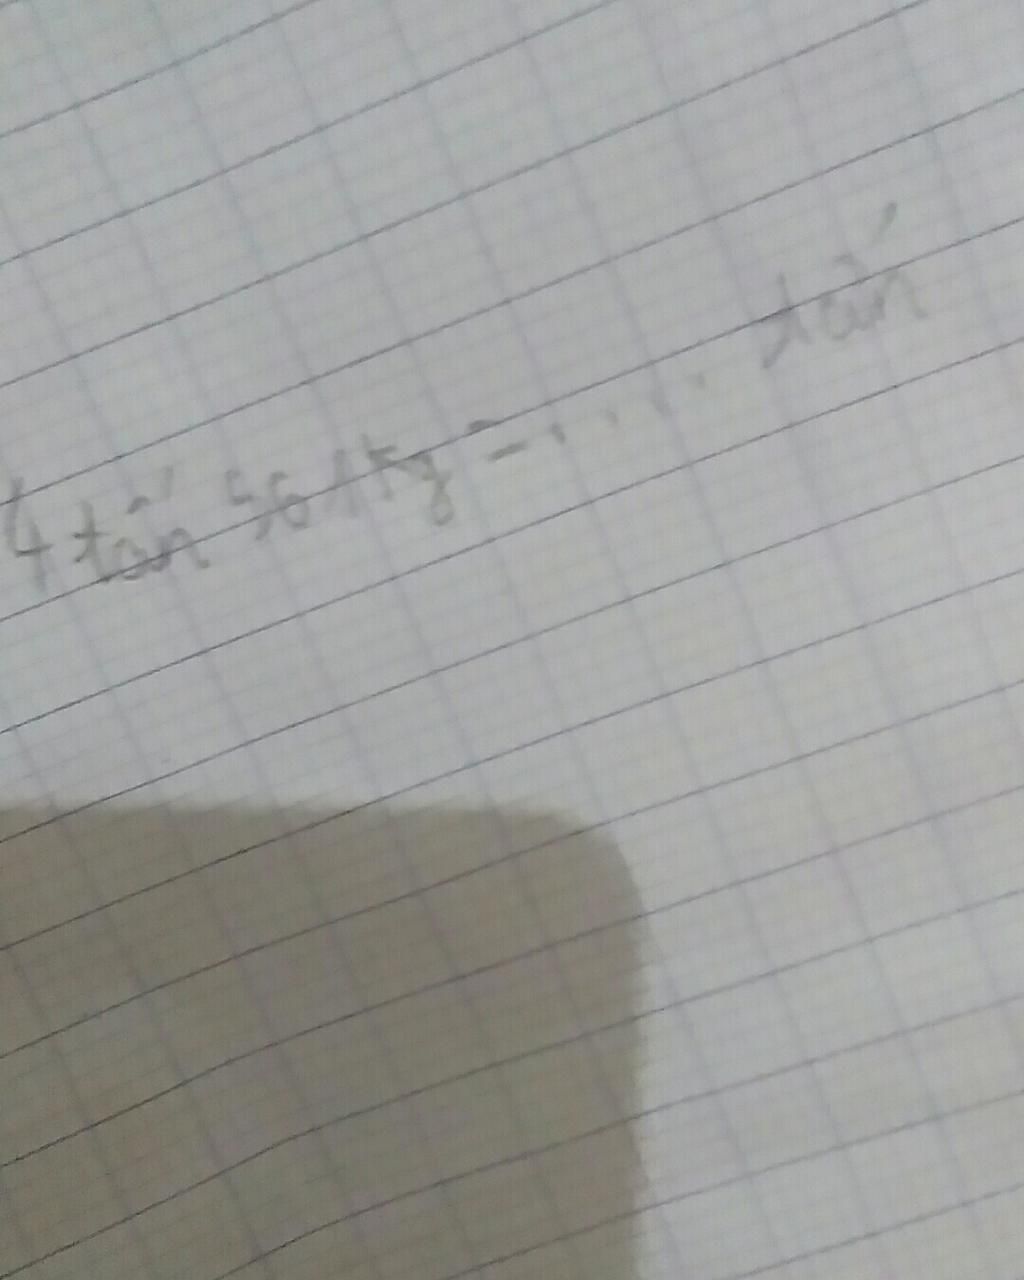 4 tấn 56 kg = .... tấn